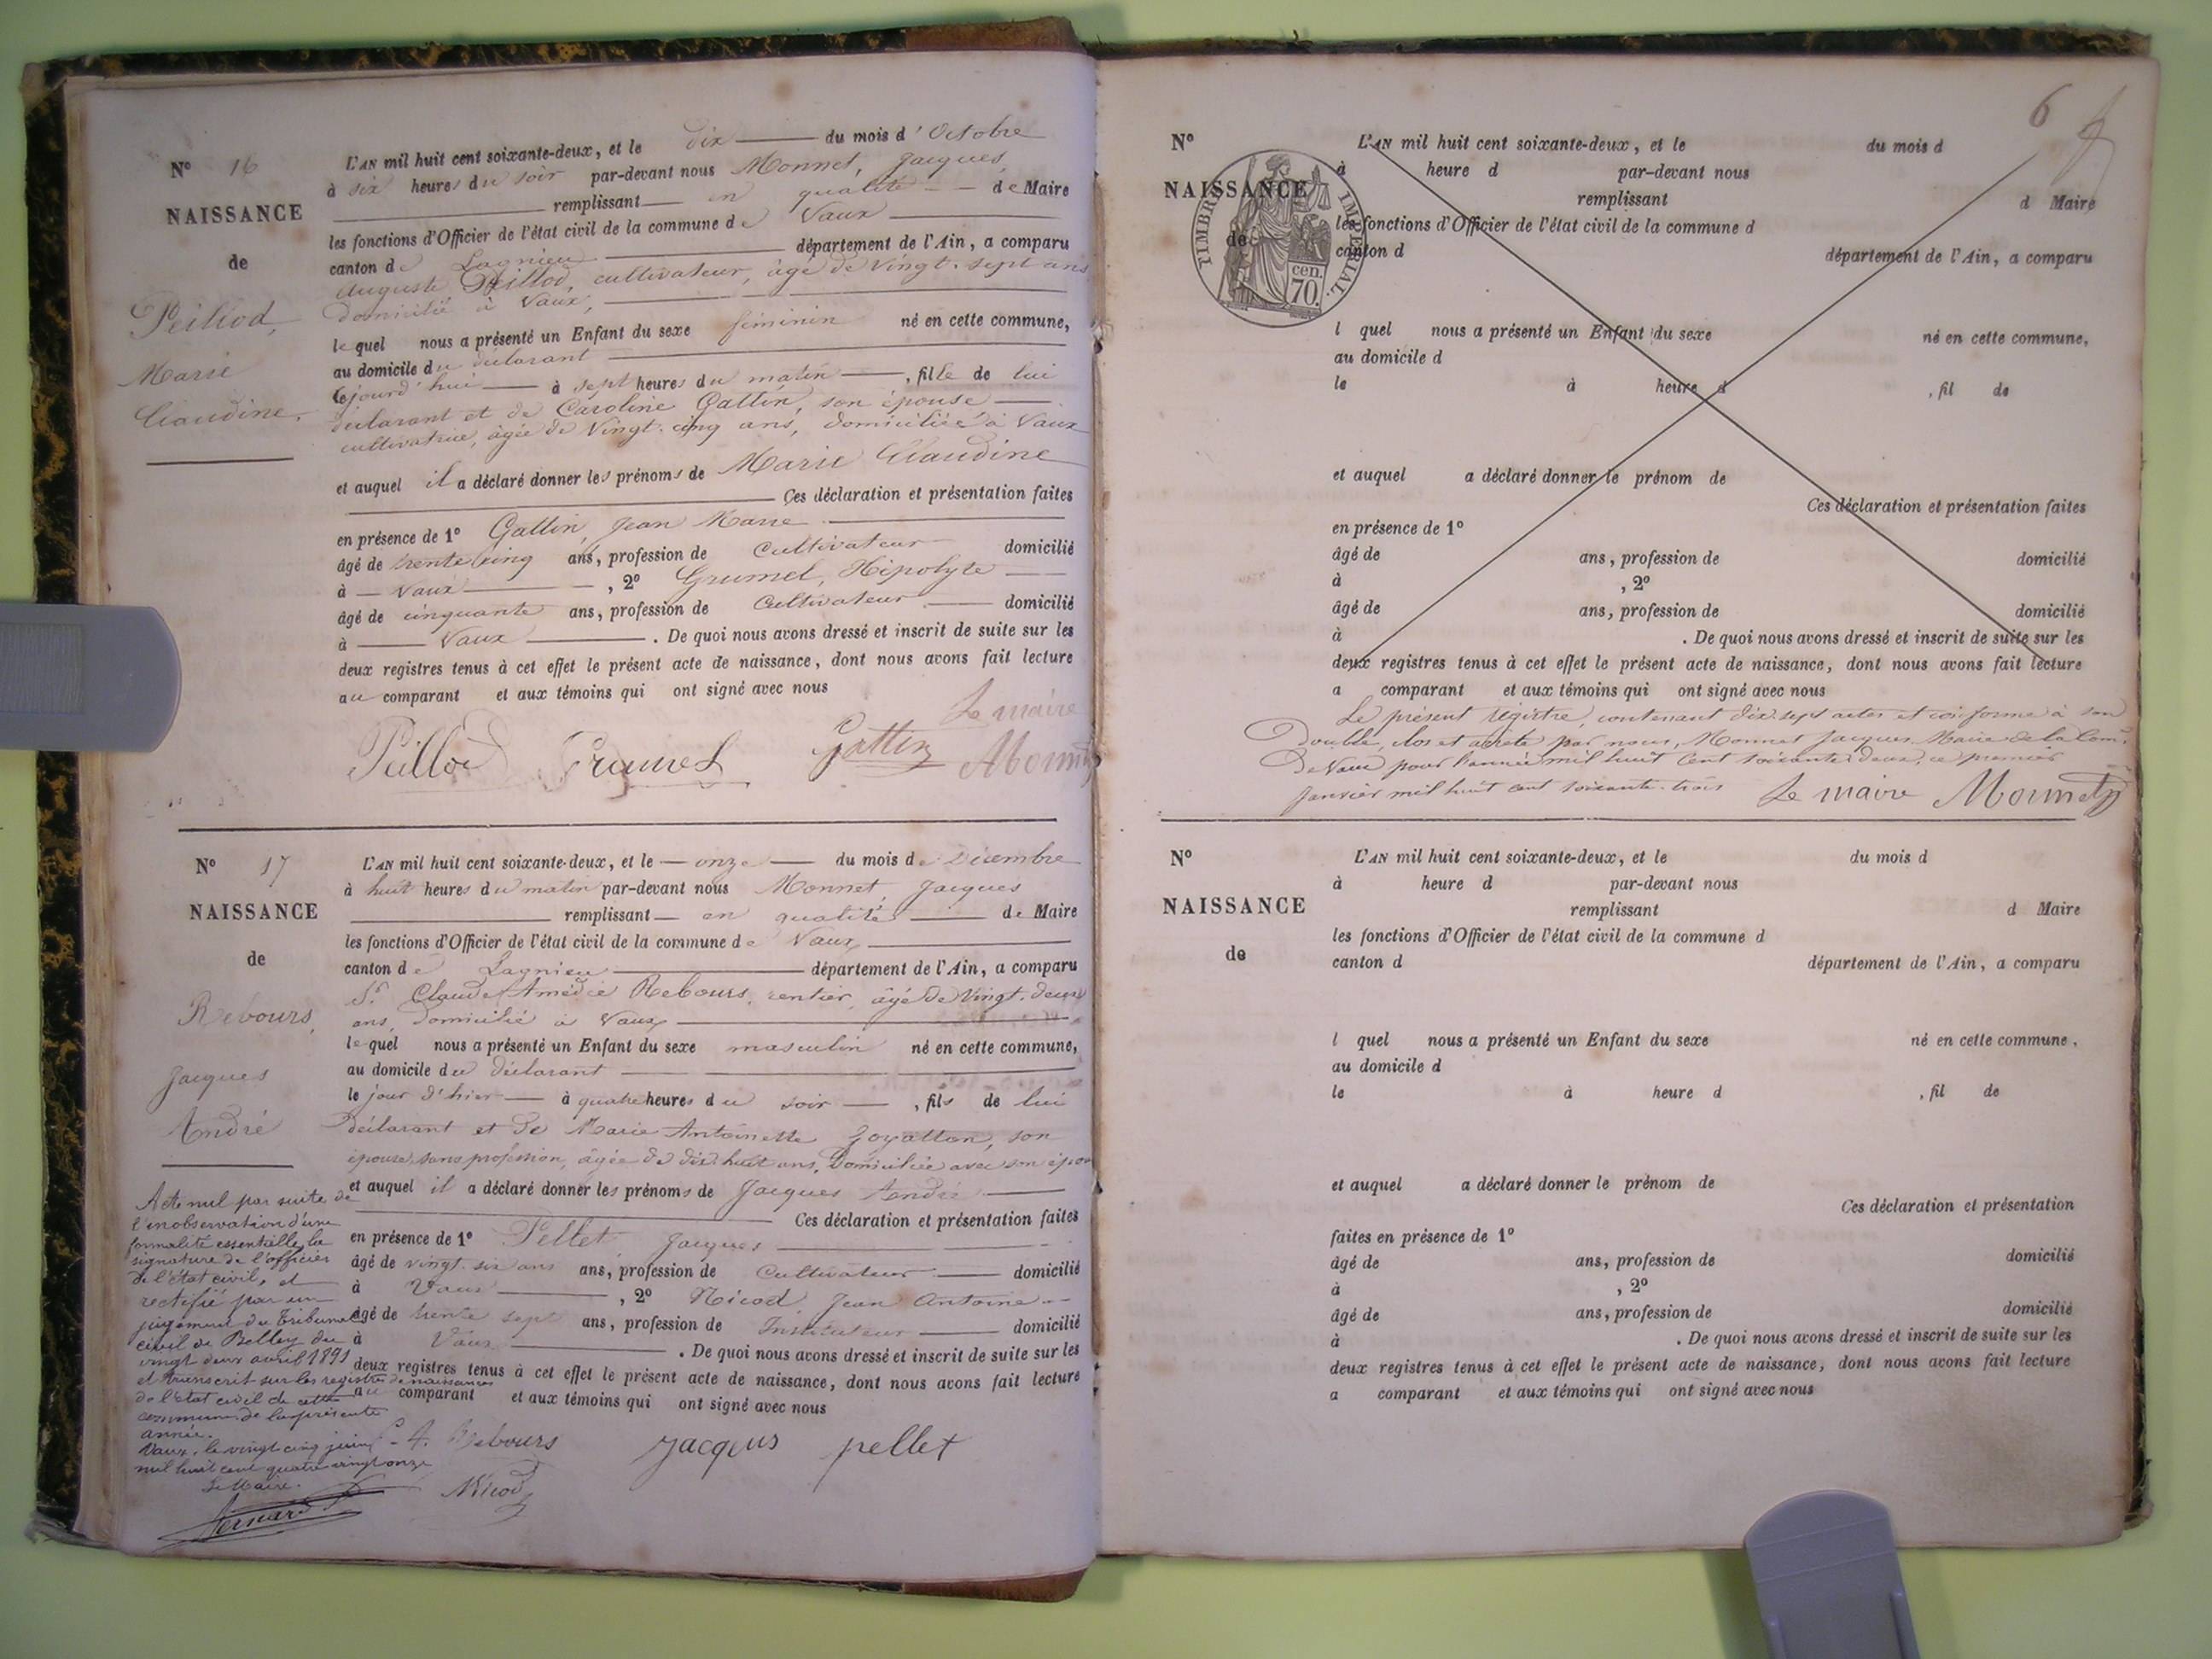 N° 16
NAISSANCE
de
Peillod,
Marie
Claudine.
L'AN mil huit cent soixante-deux, et le dix du mois d'Octobre
à six heures du soir par-devant nous Monnet, Jacques,
remplissant en qualité de Maire
les fonctions d'Officier de l'état civil de la commune de Vaux
canton de Lagnieu département de l'Ain, a comparu
Auguste Peillod, cultivateur, âgé de Vingt-sept ans
domicilié à Vaux,
lequel nous a présenté un Enfant du sexe féminin né en cette commune,
au domicile du déclarant
cejourd'hui à sept heures du matin, fille de lui
déclarant et de Caroline Gattin, son épouse
cultivatrice, âgée de Vingt-cinq ans, domiciliée à Vaux
et auquel il a déclaré donner les prénoms de Marie Claudine
Ces déclaration et présentation faites
en présence de 1° Gattin, Jean Marie
âgé de trente cinq ans, profession de Cultivateur domicilié
à Vaux, 2° Grumel, Hipolyte
âgé de cinquante ans, profession de Cultivateur domicilié
à Vaux. De quoi nous avons dressé et inscrit de suite sur les
deux registres tenus à cet effet le présent acte de naissance, dont nous avons fait lecture
au comparant et aux témoins qui ont signé avec nous
Le maire
Peillod Grumel Gattin Monnet
N° 17
NAISSANCE
de
Rebours,
Jacques
André
L'AN mil huit cent soixante-deux, et le onze du mois de Décembre
à huit heures du matin par-devant nous Monnet, Jacques
remplissant en qualité de Maire
les fonctions d'Officier de l'état civil de la commune de Vaux
canton de Lagnieu département de l'Ain, a comparu
Sr. Claude Amédée Rebours, rentier, âgé de Vingt-deux
ans, domicilié à Vaux
lequel nous a présenté un Enfant du sexe masculin né en cette commune,
au domicile du déclarant
le jour d'hier à quatre heures du soir, fils de lui
déclarant et de Marie Antoinette Goyatton, son
épouse, sans profession, âgée de dix huit ans, Domiciliée avec son époux
et auquel il a déclaré donner les prénoms de Jacques André
Ces déclaration et présentation faites
en présence de 1° Pellet Jacques
âgé de vingt-six ans ans, profession de Cultivateur domicilié
à Vaux, 2° Nicod, Jean Antoine
âgé de trente sept ans, profession de Instituteur domicilié
à Vaux. De quoi nous avons dressé et inscrit de suite sur les
deux registres tenus à cet effet le présent acte de naissance, dont nous avons fait lecture
au comparant et aux témoins qui ont signé avec nous
Acte nul par suite de
l'inobservation d'une
formalité essentielle, la
signature de l'officier
de l'état civil, et
rectifié par un
jugement du Tribunal
civil de Belley du
vingt deux avril 1891
et transcrit sur les registres de naissances
de l'état civil de cette
commune de la présente
année.
Vaux, le vingt cinq juin
mil huit cent quatre vingt onze
Le Maire.
Bernard
C. A. Rebours Jacques pellet
Nicod
6
N°
NAISSANCE
de
TIMBRE IMPERIAL.
cen.
70.
L'AN mil huit cent soixante-deux, et le du mois d
à heure d par-devant nous
remplissant d Maire
les fonctions d'Officier de l'état civil de la commune d
canton d département de l'Ain, a comparu
l quel nous a présenté un Enfant du sexe né en cette commune,
au domicile d
le à heure d , fil de
et auquel a déclaré donner le prénom de
Ces déclaration et présentation faites
en présence de 1°
âgé de ans, profession de domicilié
à , 2°
âgé de ans, profession de domicilié
à . De quoi nous avons dressé et inscrit de suite sur les
deux registres tenus à cet effet le présent acte de naissance, dont nous avons fait lecture
a comparant et aux témoins qui ont signé avec nous
Le présent régistre, contenant dix-sept actes et conforme à son
Double, clos et arrêté par nous, Monnet Jacques Maire de la Com.
De Vaux pour l'année mil huit Cent soixante deux, ce premier
Janvier mil huit cent soixante-trois Le maire Monnet
N°
NAISSANCE
de
L'AN mil huit cent soixante-deux, et le du mois d
à heure d par-devant nous
remplissant d Maire
les fonctions d'Officier de l'état civil de la commune d
canton d département de l'Ain, a comparu
l quel nous a présenté un Enfant du sexe né en cette commune,
au domicile d
le à heure d , fil de
et auquel a déclaré donner le prénom de
Ces déclaration et présentation
faites en présence de 1°
âgé de ans, profession de domicilié
à , 2°
âgé de ans, profession de domicilié
à . De quoi nous avons dressé et inscrit de suite sur les
deux registres tenus à cet effet le présent acte de naissance, dont nous avons fait lecture
a comparant et aux témoins qui ont signé avec nous